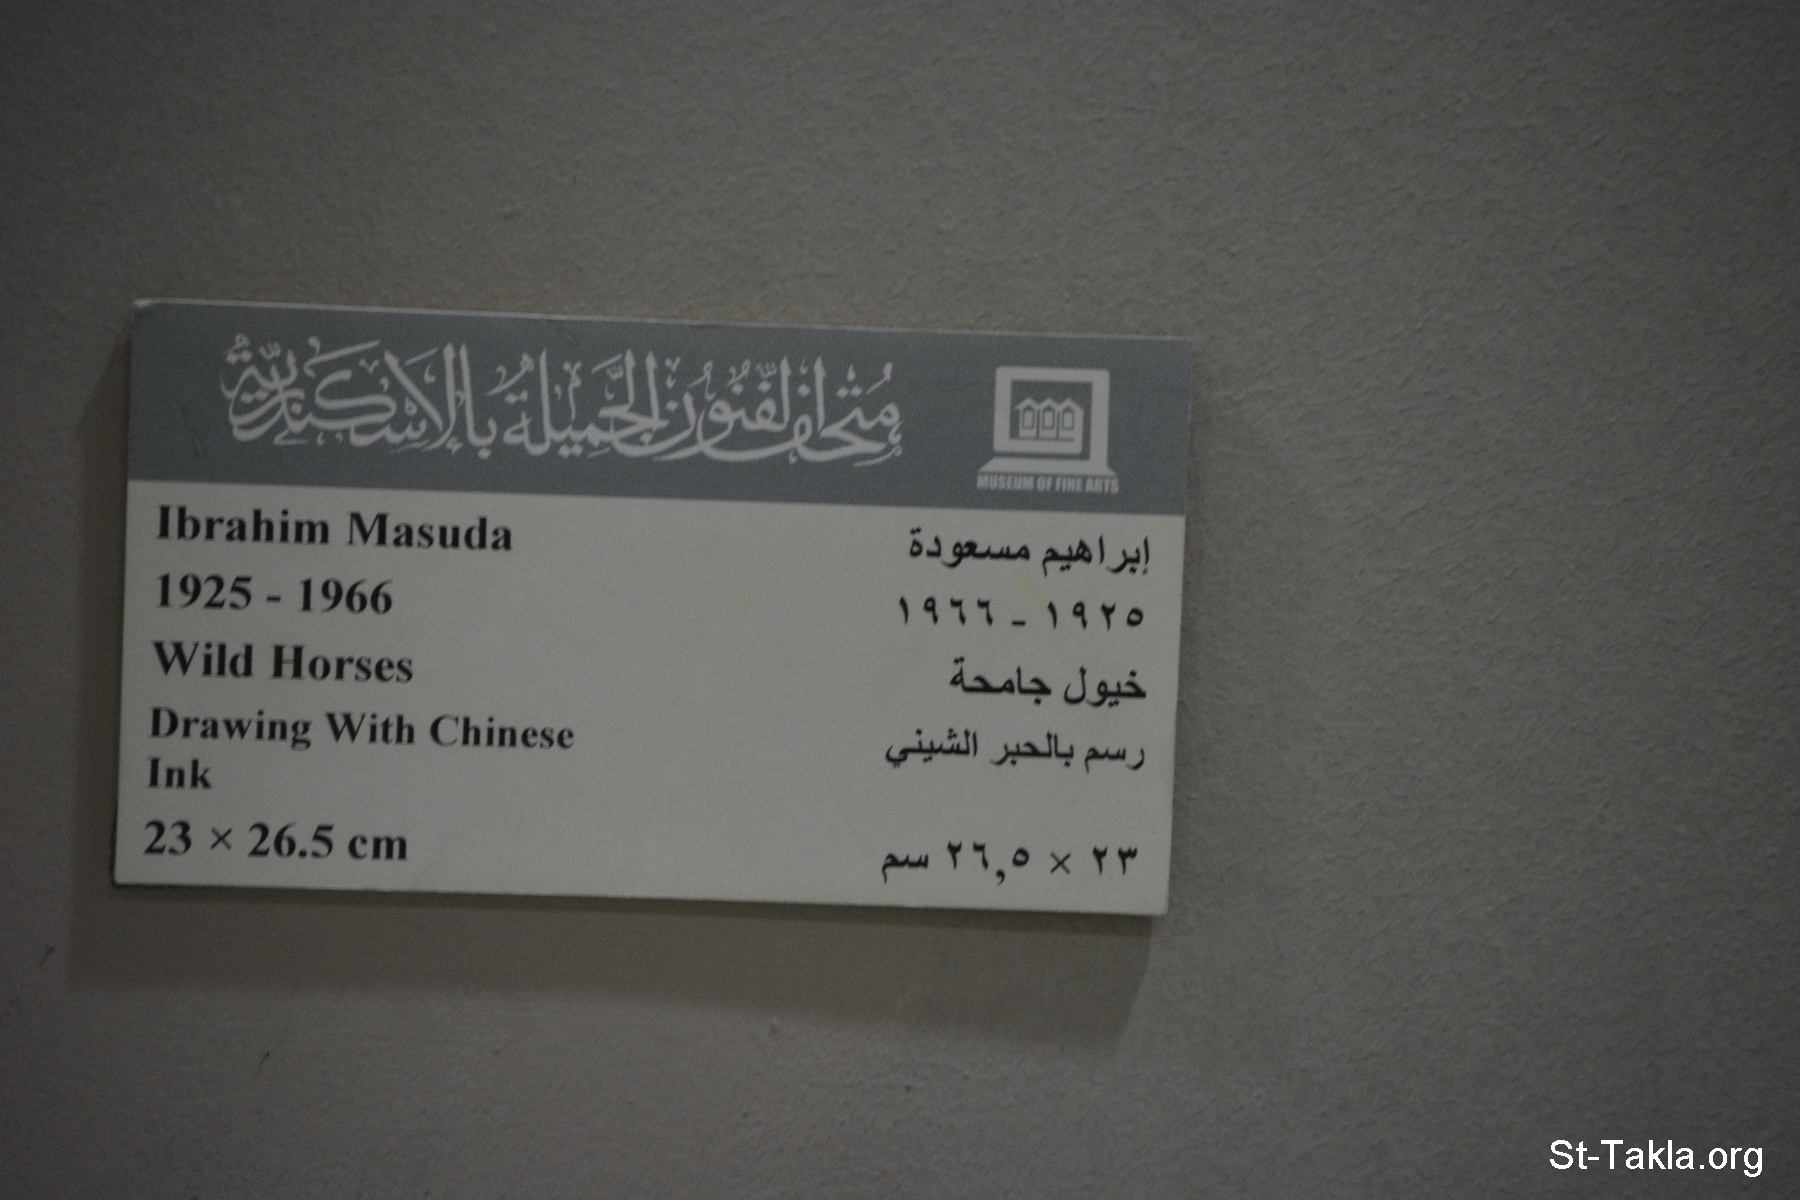 متحف الفنون الجميلة بالاسكندرية
MUSEUM OF FINE ARTS
Ibrahim Masuda
1925 - 1966
Wild Horses
Drawing With Chinese
Ink
23 × 26.5 cm
إبراهيم مسعودة
١٩٢٥ - ١٩٦٦
خيول جامحة
رسم بالحبر الشيني
٢٣ × ٢٦,٥ سم
St-Takla.org